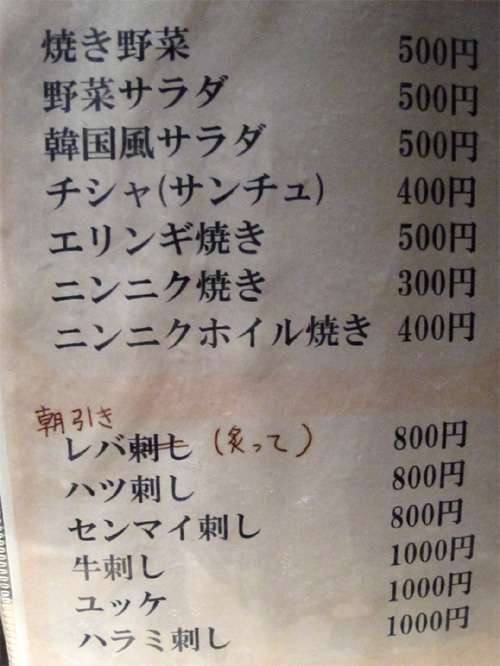 焼き野菜 500円
野菜サラダ 500円
韓国風サラダ 500円
チシャ(サンチュ) 400円
エリンギ焼き 500円
ニンニク焼き 300円
ニンニクホイル焼き 400円
朝引き
レバ刺し (炙って) 800円
ハツ刺し 800円
センマイ刺し 800円
牛刺し 1000円
ユッケ 1000円
ハラミ刺し 1000円